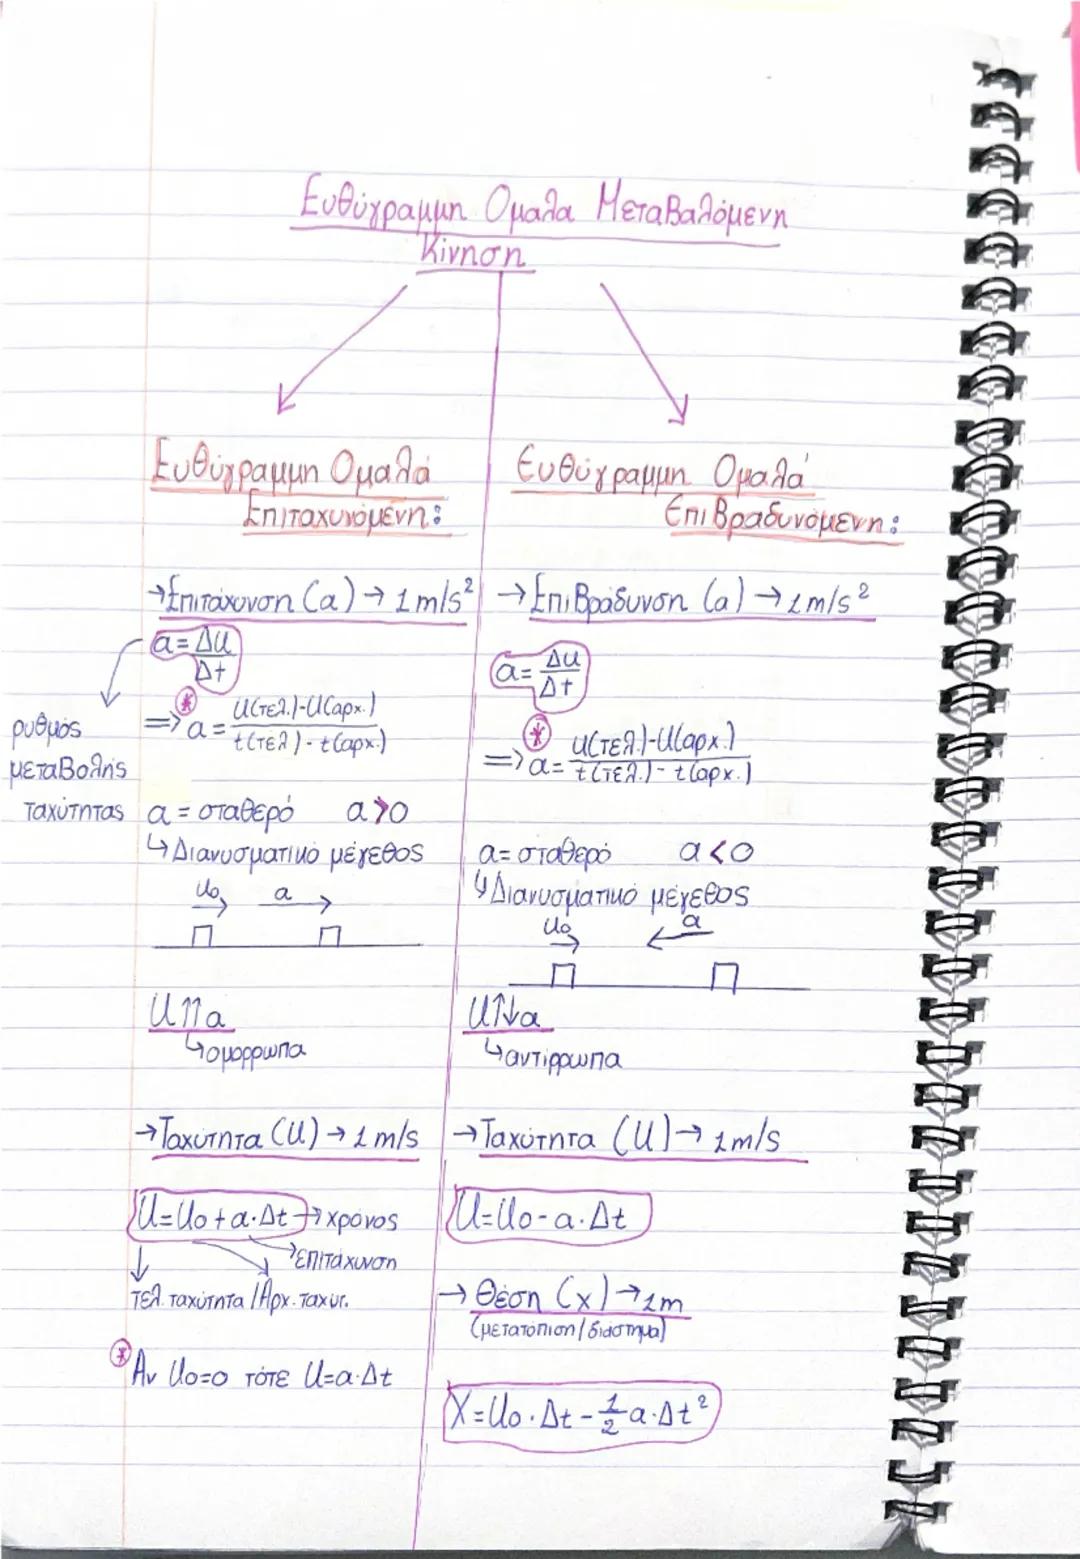 Ευθύγραμμη Ομαλα Μεταβαλόμενη
Κίνηση
Ευθύγραμμη Ομαλά
Επιταχυνόμενη:
→Επιτάχυνση (a) → 1m/s²
a = Δu/Δt
ρυθμός
μεταβολής
ταχύτητας
* => a = u(τελ.)-u(αρχ.) / t(τελ) - t(αρχ.)
a = σταθερό a>0
↳Διανυσματικό μέγεθος
uo a
u↑↑a
↳ομόρρωπα
→Ταχύτητα (u) → 1m/s
u=uo+a·Δt → χρόνος
επιτάχυνση
τελ. ταχύτητα / Αρχ. ταχύτ.
* Αν uo=0 τότε u=a·Δt
Ευθύγραμμη Ομαλά
Επιβραδυνόμενη:
→ Επιβράδυνση (a) → 1m/s²
a = Δu/Δt
* => a = u(τελ.)-u(αρχ.) / t(τελ.) - t(αρχ.)
a= σταθερό a<0
↳Διανυσματικό μέγεθος
uo a
u↑↓a
↳αντίρρωπα
→Ταχύτητα (u) → 1m/s
u=uo-a·Δt
→ Θέση (x) → 1m
(μετατόπιση/διάστημα)
x=uo·Δt - 1/2 a·Δt²